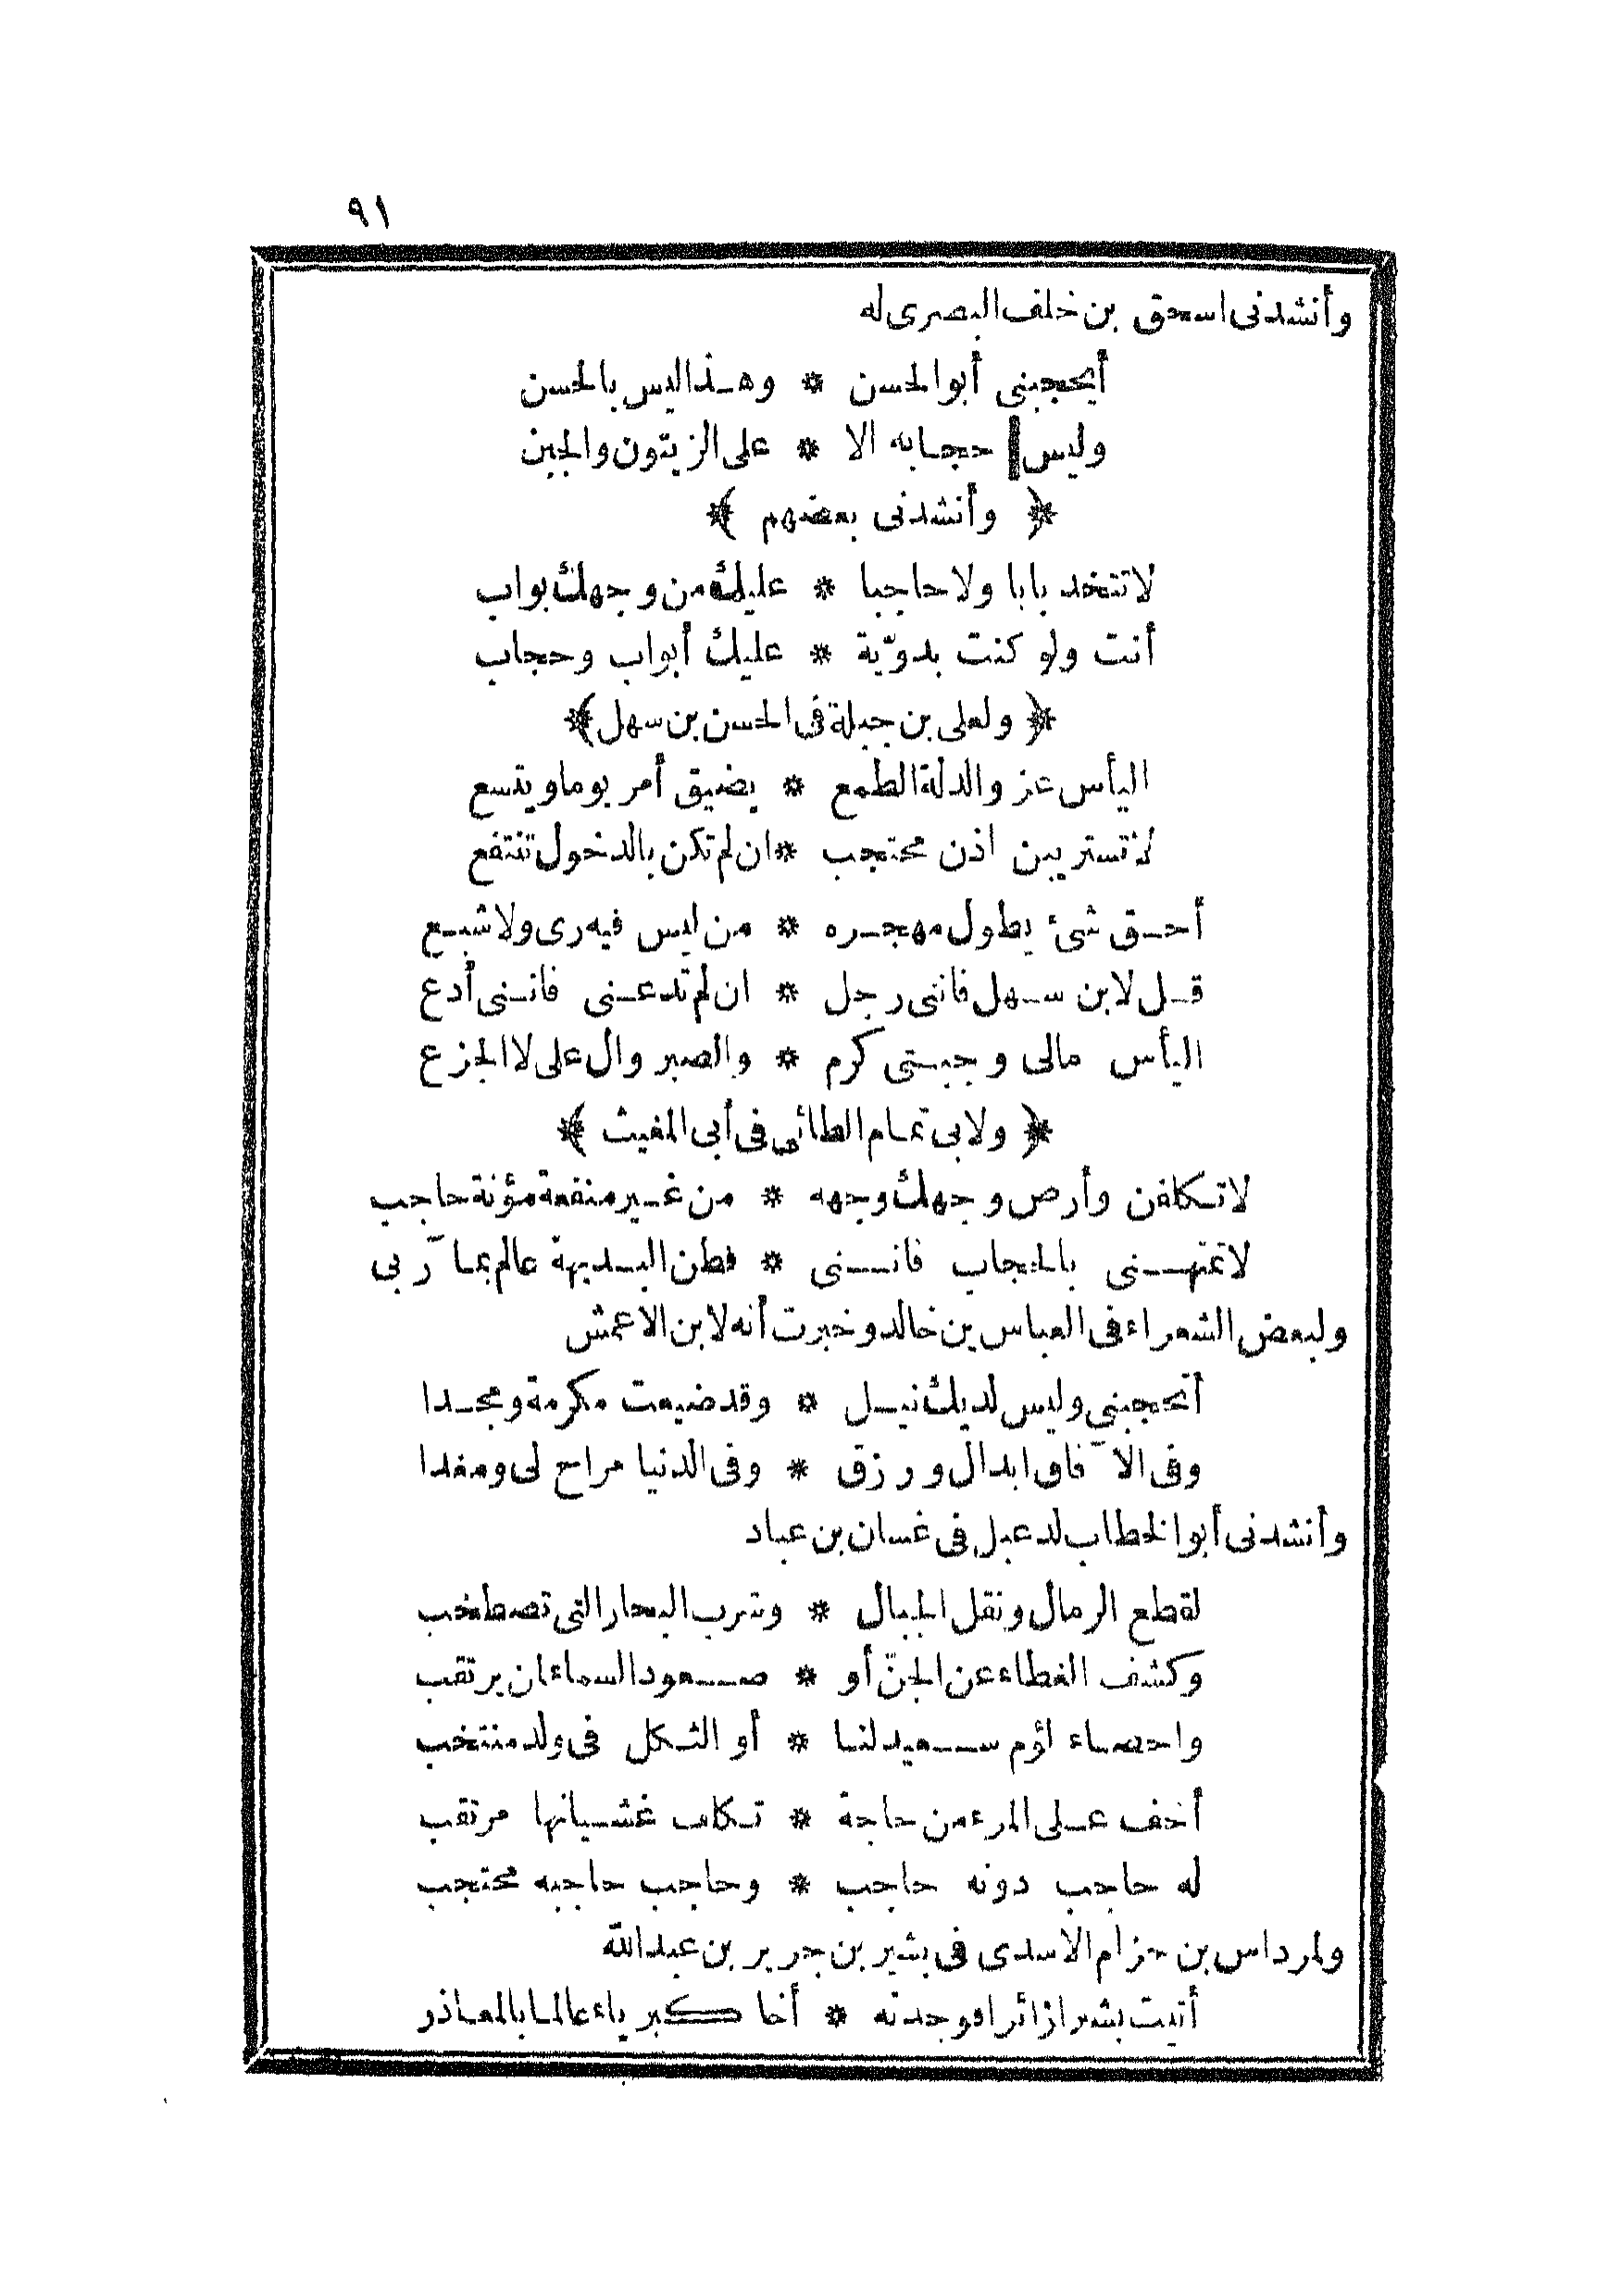 ٩١
وأنشدنى اسحق بن خلف البصرى له
أيحجبنى أبو الحسن * وهذا ليس بالحسن
وليس حجابه الا * على الزيتون والجبن
﴿ وأنشدنى بعضهم ﴾
لا تتخذ بابا ولا حاجبا * عليك من وجهك بواب
أنت ولو كنت بدوّية * عليك أبواب وحجاب
﴿ ولعلى بن جبلة فى الحسن بن سهل ﴾
اليأس عز والذلة الطمع * يضيق أمر يوما ويتسع
لا تستريبن اذن محتجب * ان لم تكن بالدخول تنتفع
أحق شئ يطول مهجره * من ليس فيه رى ولا شبع
قل لابن سهل فاننى رجل * ان لم تدعنى فاننى أدع
اليأس مالى وجبتى كرم * والصبر وال على لا الجزع
﴿ ولابى تمام الطائى فى أبى المغيث ﴾
لا تكلفن وأرض وجهك وجهه * من غير منفعة مؤنة حاجب
لا تمتهنى بالحجاب فاننى * فطن البديهة عالم بمآ ربى
ولبعض الشعراء فى العباس بن خالد وخبرت أنه لابن الاعمش
أتحجبنى وليس لديك نيل * وقد ضيعت مكرمة ومجدا
وفى الآ فاق ابدال ورزق * وفى الدنيا مراح لى ومغدا
وأنشدنى أبو الخطاب لدعبل فى غسان بن عباد
لقطع الرمال ونقل الجبال * وشرب البحار التى تصطخب
وكشف الغطاء عن الجنّ أو * صعود السماء لن يرتقب
واحصاء لؤم سعيد لنا * أو الثكل فى ولد منتخب
أخف على المرء من حاجة * تكلف غشيانها مرتقب
له حاجب دونه حاجب * وحاجب حاجبه محتجب
ولمرداس بن حزام الاسدى فى بشير بن جرير بن عبد الله
أتيت بشيرا زائرا فوجدته * أخا كبرياء عالما بالمعاذر